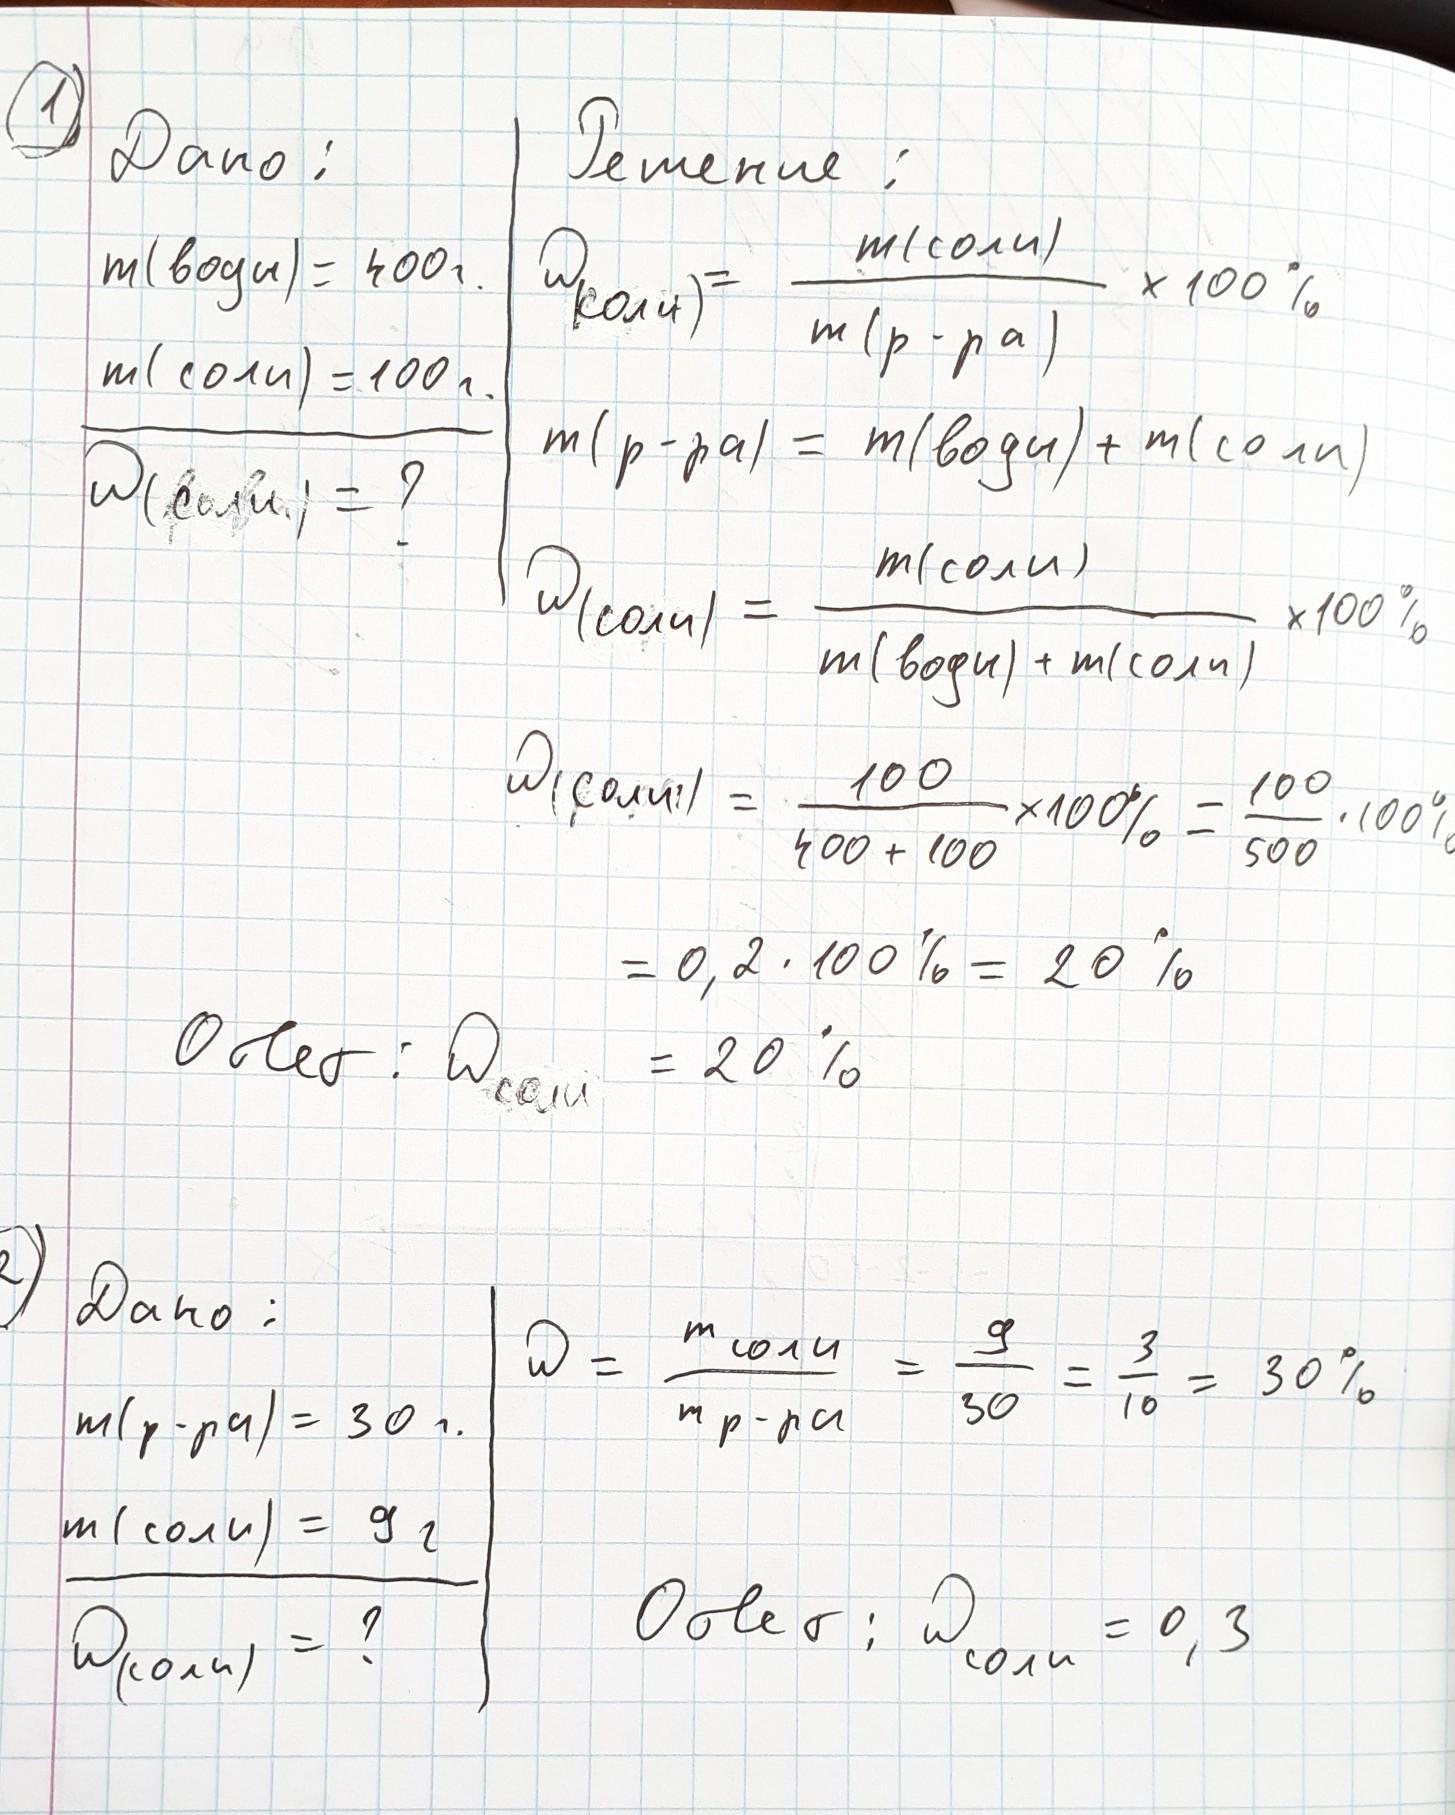 1)
Дано:
m(води) = 400 г.
m(соли) = 100 г.
W(соли) = ?
Решение:
W(соли) = m(соли) / m(р-ра) × 100%
m(р-ра) = m(води) + m(соли)
W(соли) = m(соли) / m(води) + m(соли) × 100%
W(соли) = 100 / 400 + 100 × 100% = 100 / 500 · 100%
= 0,2 · 100% = 20%
Ответ: W соли = 20%
2)
Дано:
m(р-ра) = 30 г.
m(соли) = 9 г
W(соли) = ?
W = m соли / m р-ра = 9 / 30 = 3 / 10 = 30%
Ответ: W соли = 0,3